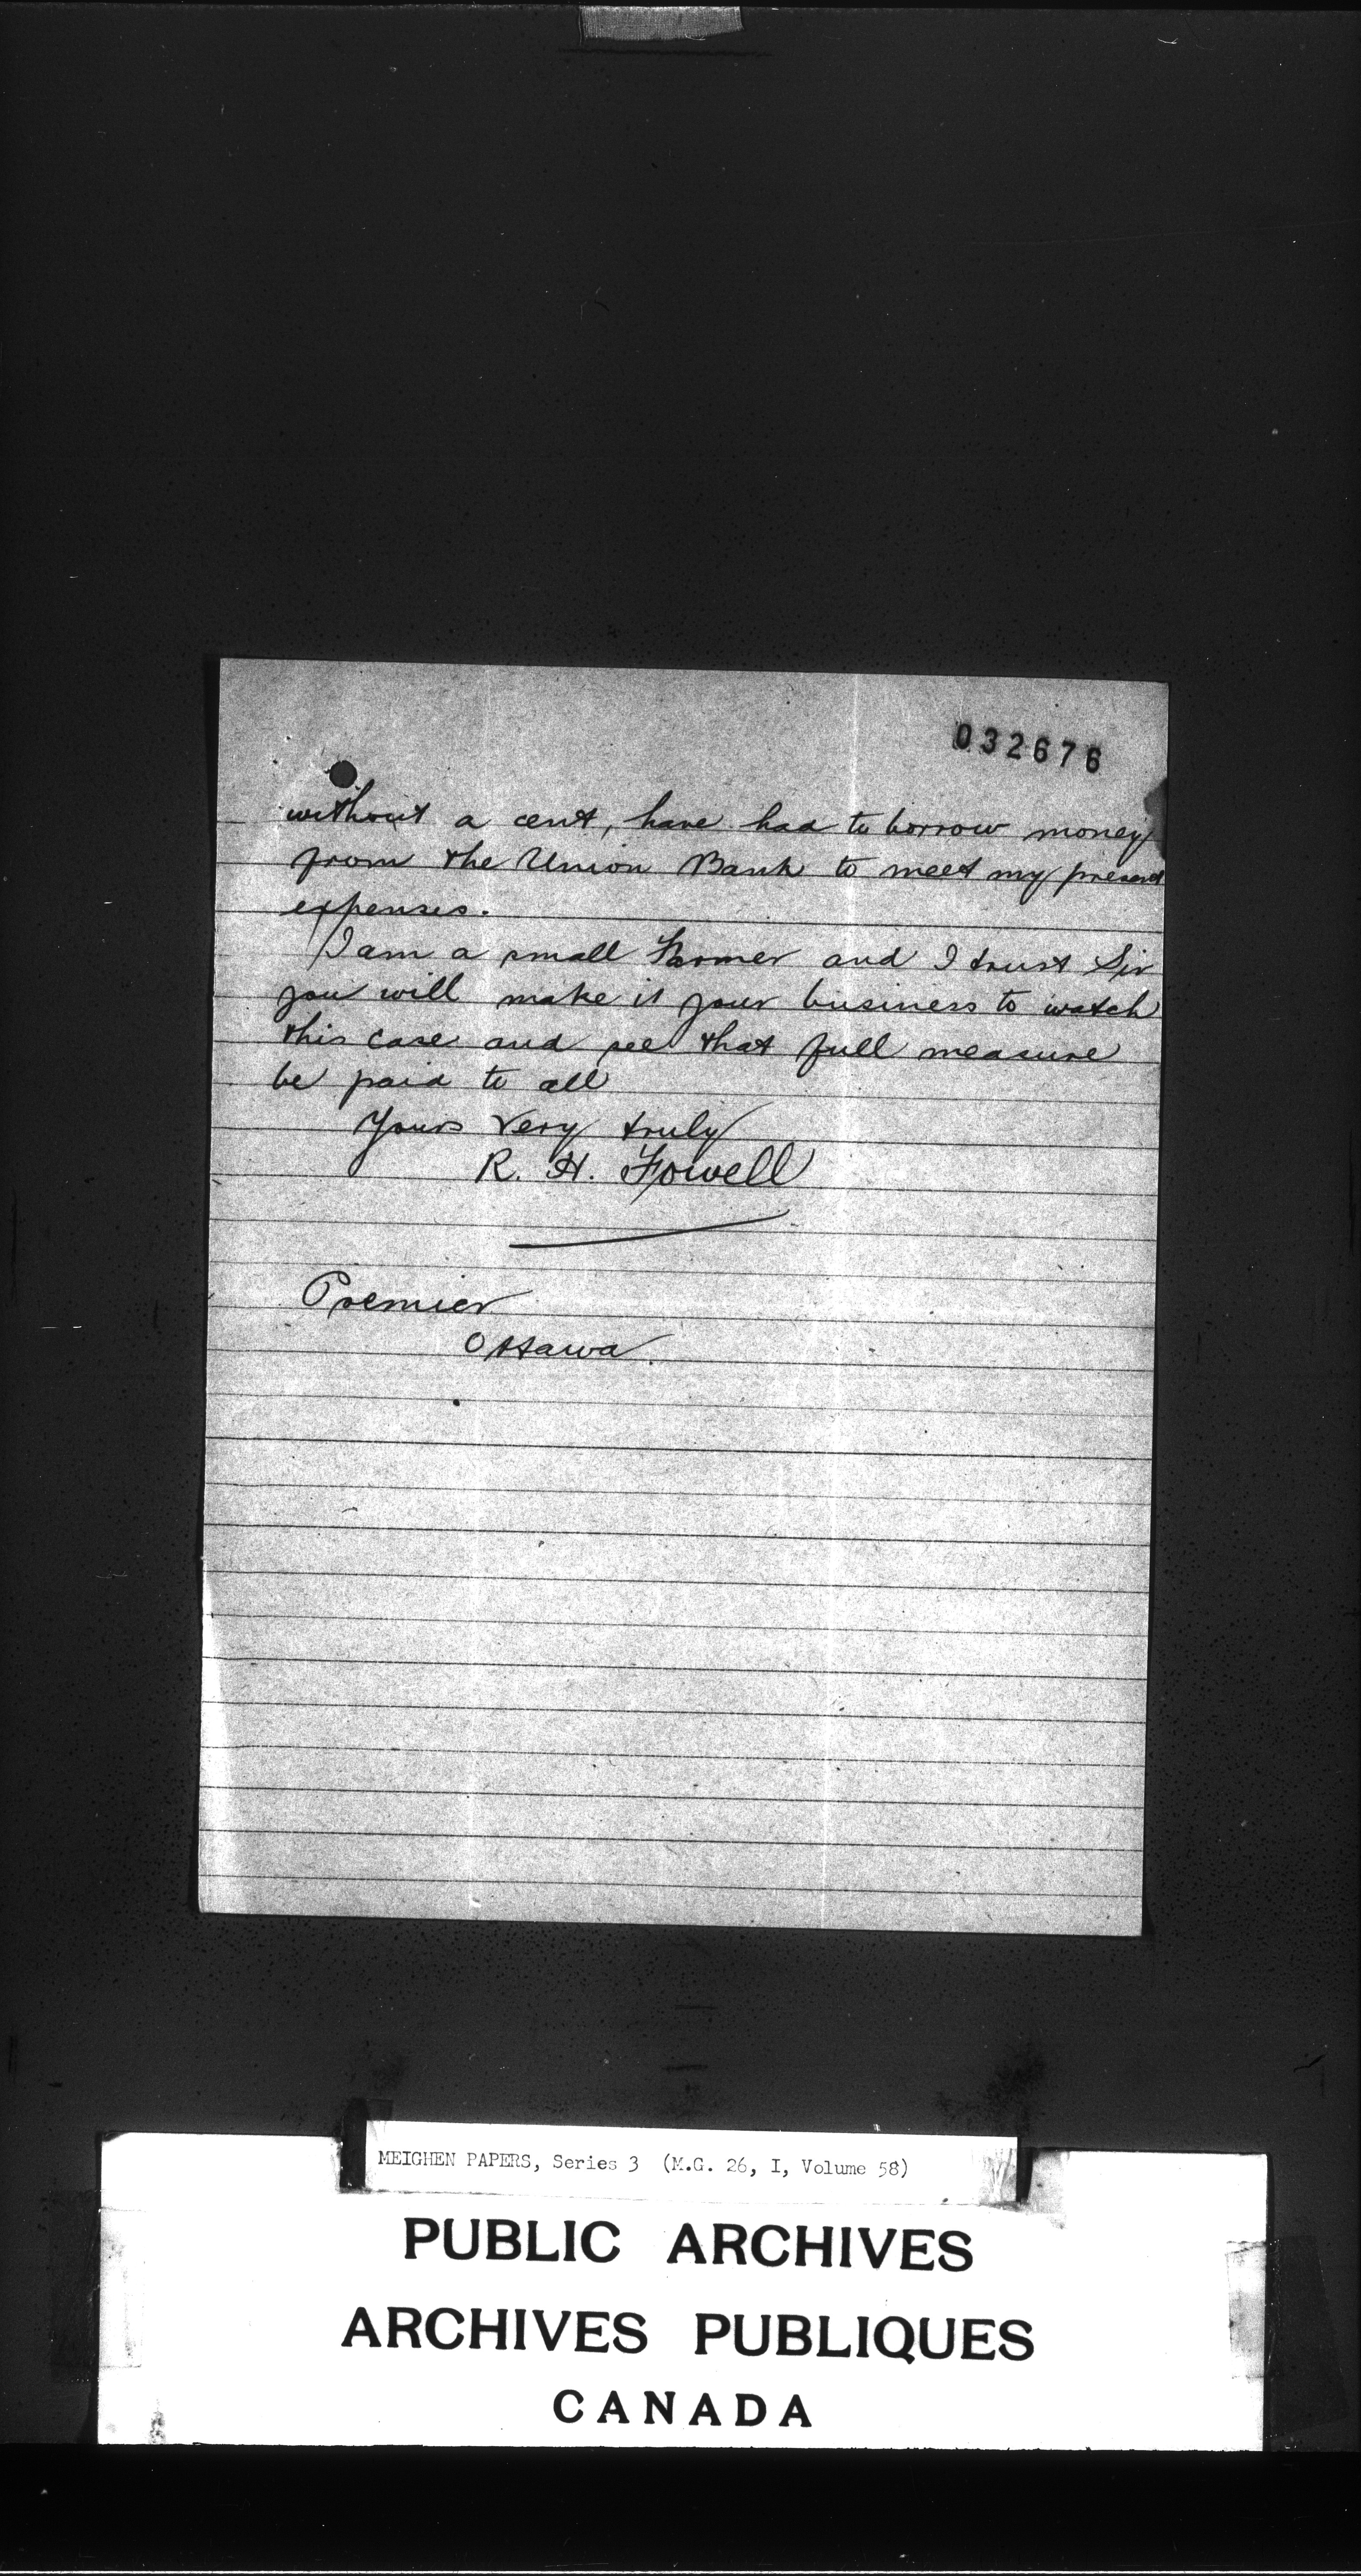 032676
without a cent, have had to borrow money
from the Union Bank to meet my present
expenses.
I am a small Farmer and I trust Sir
you will make it your business to watch
this case and see that full measure
be paid to all
Yours Very truly
R. H. Fowell
Premier
Ottawa.
MEIGHEN PAPERS, Series 3 (M.G. 26, I, Volume 58)
PUBLIC ARCHIVES
ARCHIVES PUBLIQUES
CANADA